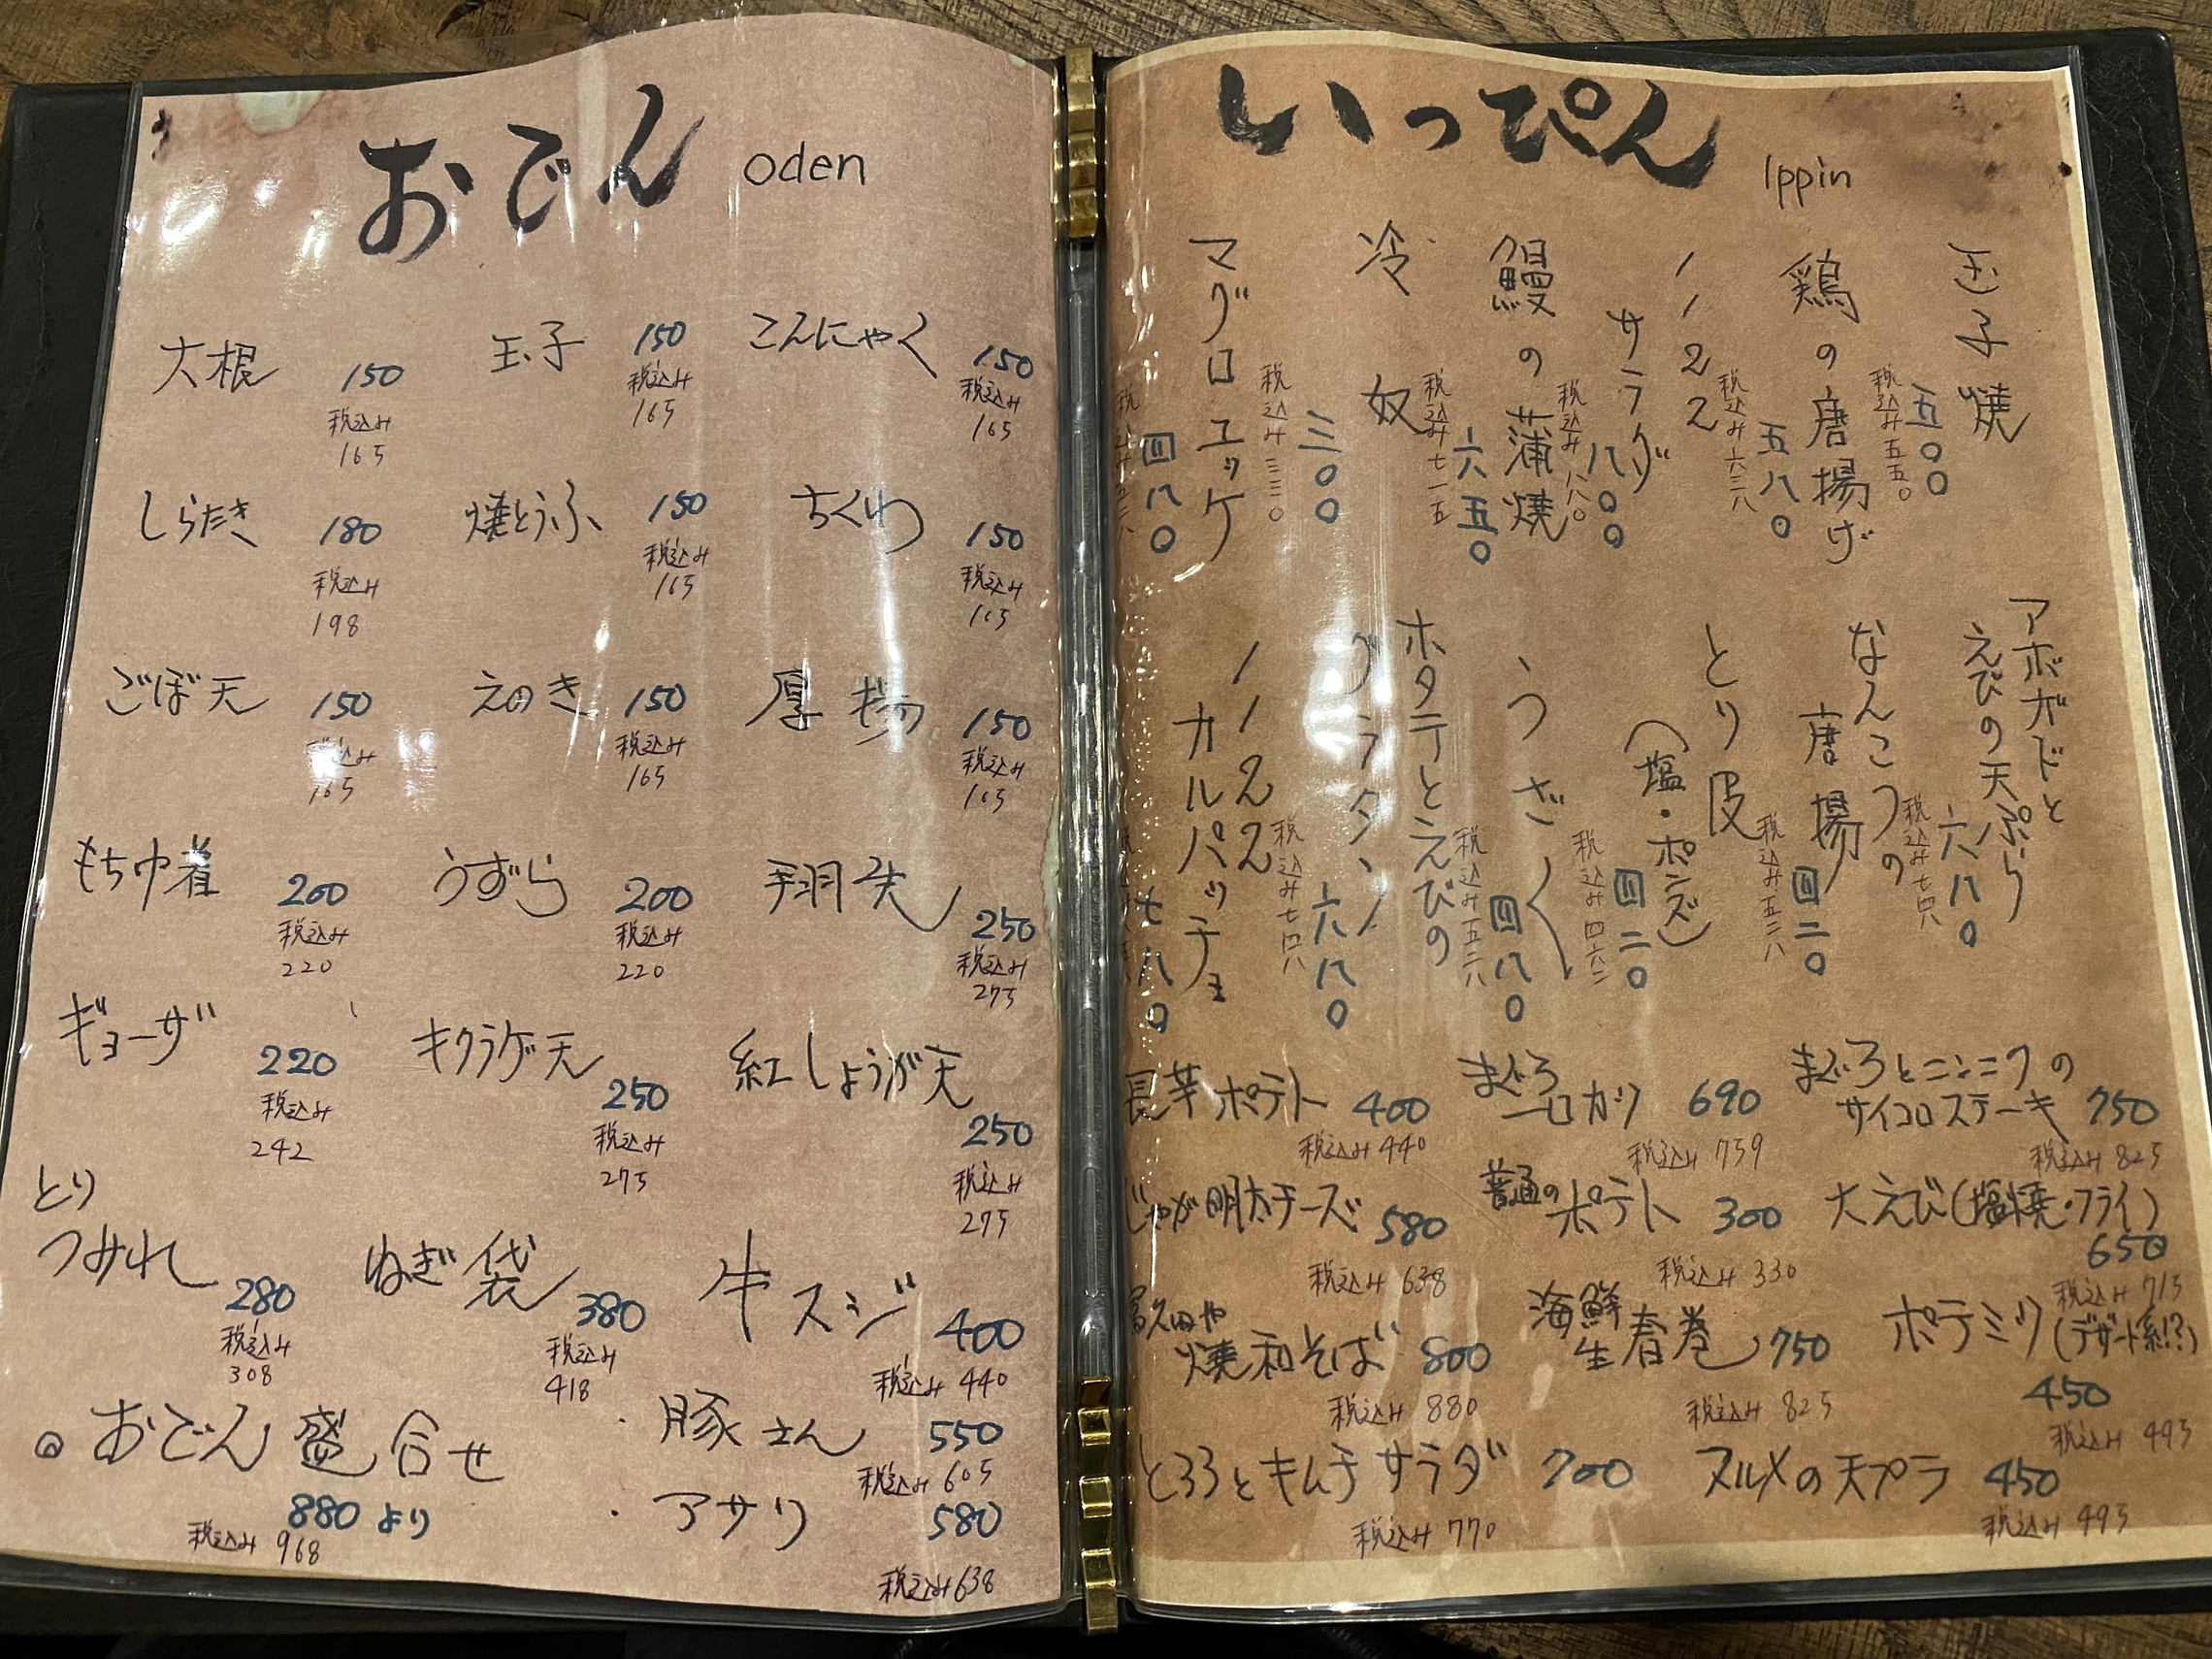 おでん oden
大根 150
税込み
165
玉子 150
税込み
165
こんにゃく 150
税込み
165
しらたき 180
税込み
198
焼とうふ 150
税込み
165
ちくわ 150
税込み
165
ごぼ天 150
税込み
165
えのき 150
税込み
165
厚揚 150
税込み
165
もち巾着 200
税込み
220
うずら 200
税込み
220
手羽先 250
税込み
275
ギョーザ 220
税込み
242
キクラゲ天 250
税込み
275
紅しょうが天 250
税込み
275
とり
つみれ 280
税込み
308
ねぎ袋 380
税込み
418
牛スジ 400
税込み 440
おでん盛合せ
880より
税込み 968
・豚さん 550
税込み 605
・アサリ 580
税込み 638
いっぴん Ippin
玉子焼
五〇〇
税込み五五〇
鶏の唐揚げ
五八〇
税込み六三八
サラダ
八〇〇
税込み八八〇
鰻の蒲焼
六五〇
税込み七一五
冷奴
三〇〇
税込み三三〇
マグロユッケ
四八〇
税込み五二八
アボガドと
えびの天ぷら
六八〇
税込み七四八
なんこつの
唐揚
四二〇
とり皮
(塩・ポンズ)
四二〇
税込み四六二
うざく
四八〇
税込み五二八
ホタテとえびの
グラタン
六八〇
税込み七四八
カルパッチョ
七八〇
長芋ポテト 400
税込み 440
まぐろ
一口カツ 690
税込み 759
まぐろとニンニクの
サイコロステーキ 750
税込み 825
じゃが明太チーズ 580
税込み 638
普通の
ポテト 300
税込み 330
大えび(塩焼・フライ)
650
税込み 715
焼和そば 800
税込み 880
海鮮
生春巻 750
税込み 825
ポテミツ(デザート系!?)
450
税込み 495
とろろとキムチサラダ 700
税込み 770
スルメの天プラ 450
税込み 495